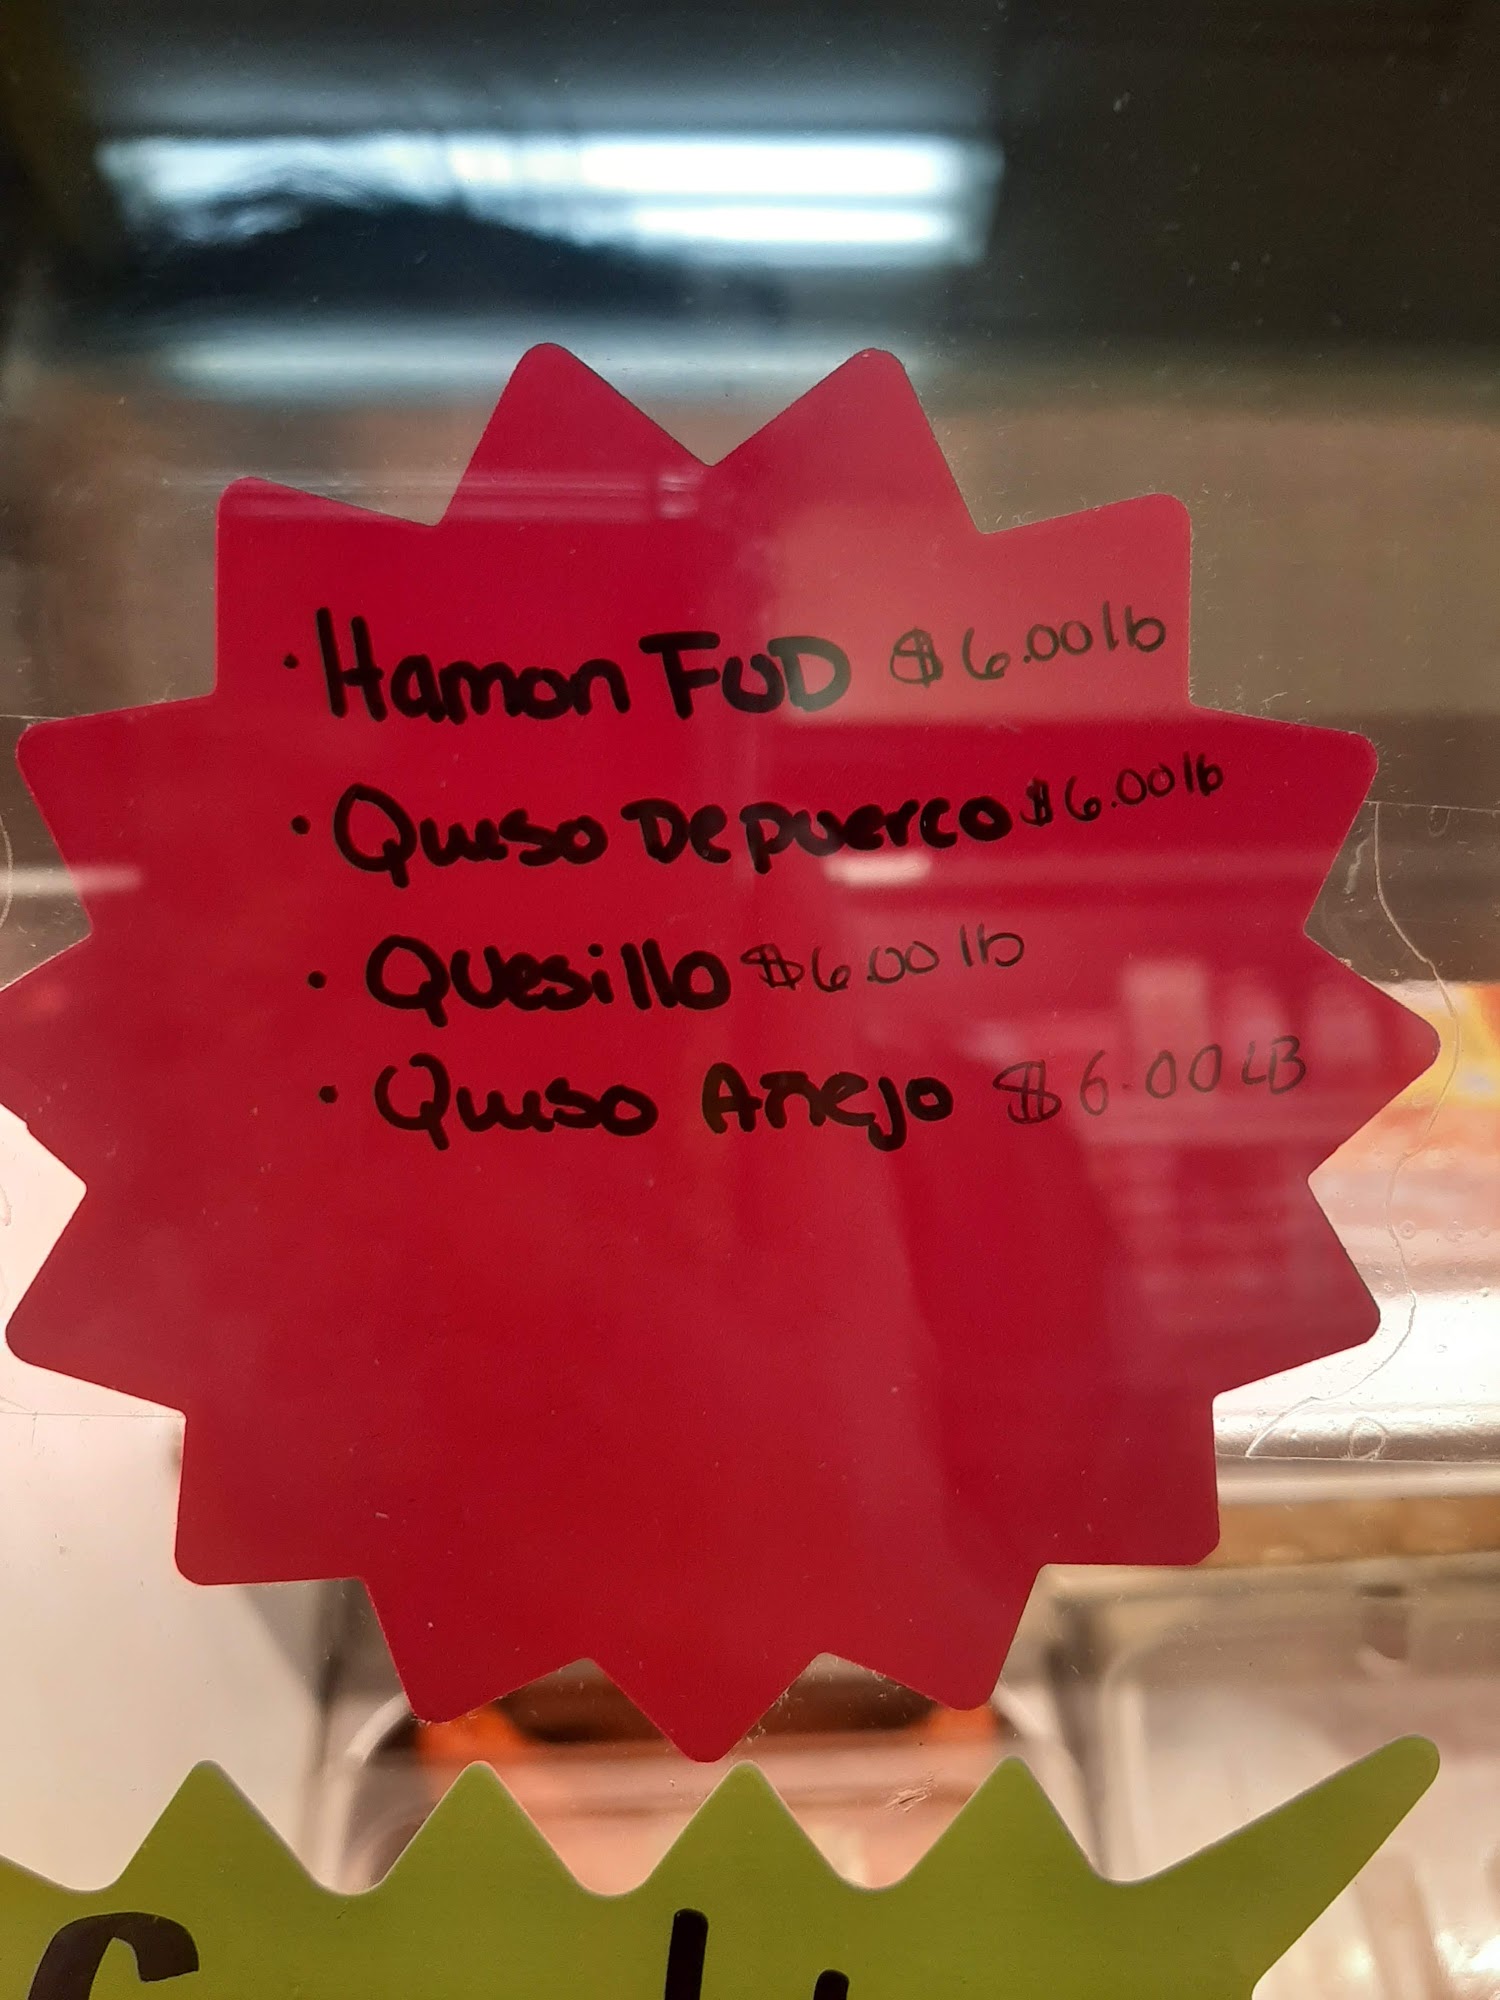 · Hamon FUD $6.00 lb
· Queso De puerco $6.00 lb
· Quesillo $6.00 lb
· Queso Añejo $6.00 LB